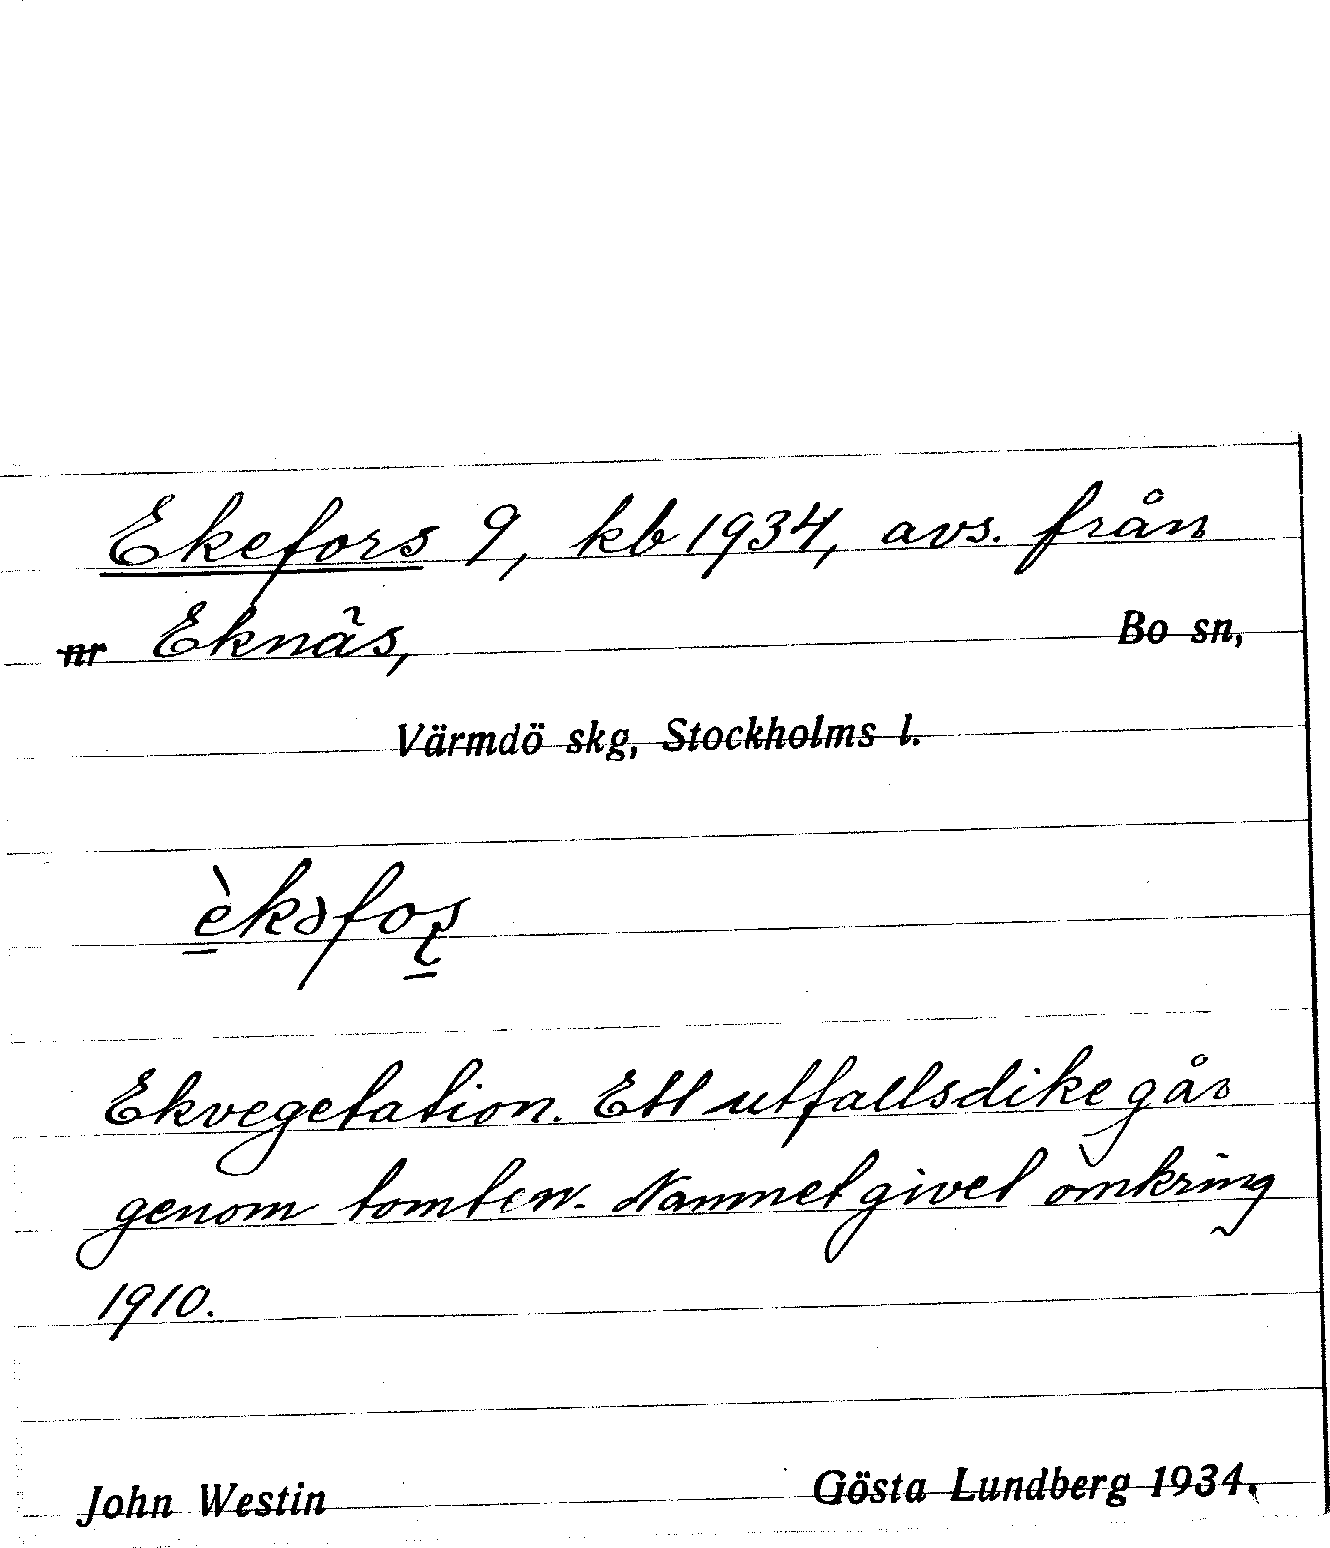 Ekefors 9, kb 1934, avs. från
nr Eknäs, Bo sn,
Värmdö skg, Stockholms l.
èkəfoʂ
Ekvegetation. Ett utfallsdike går
genom tomten. Namnet givet omkring
1910.
John Westin Gösta Lundberg 1934.